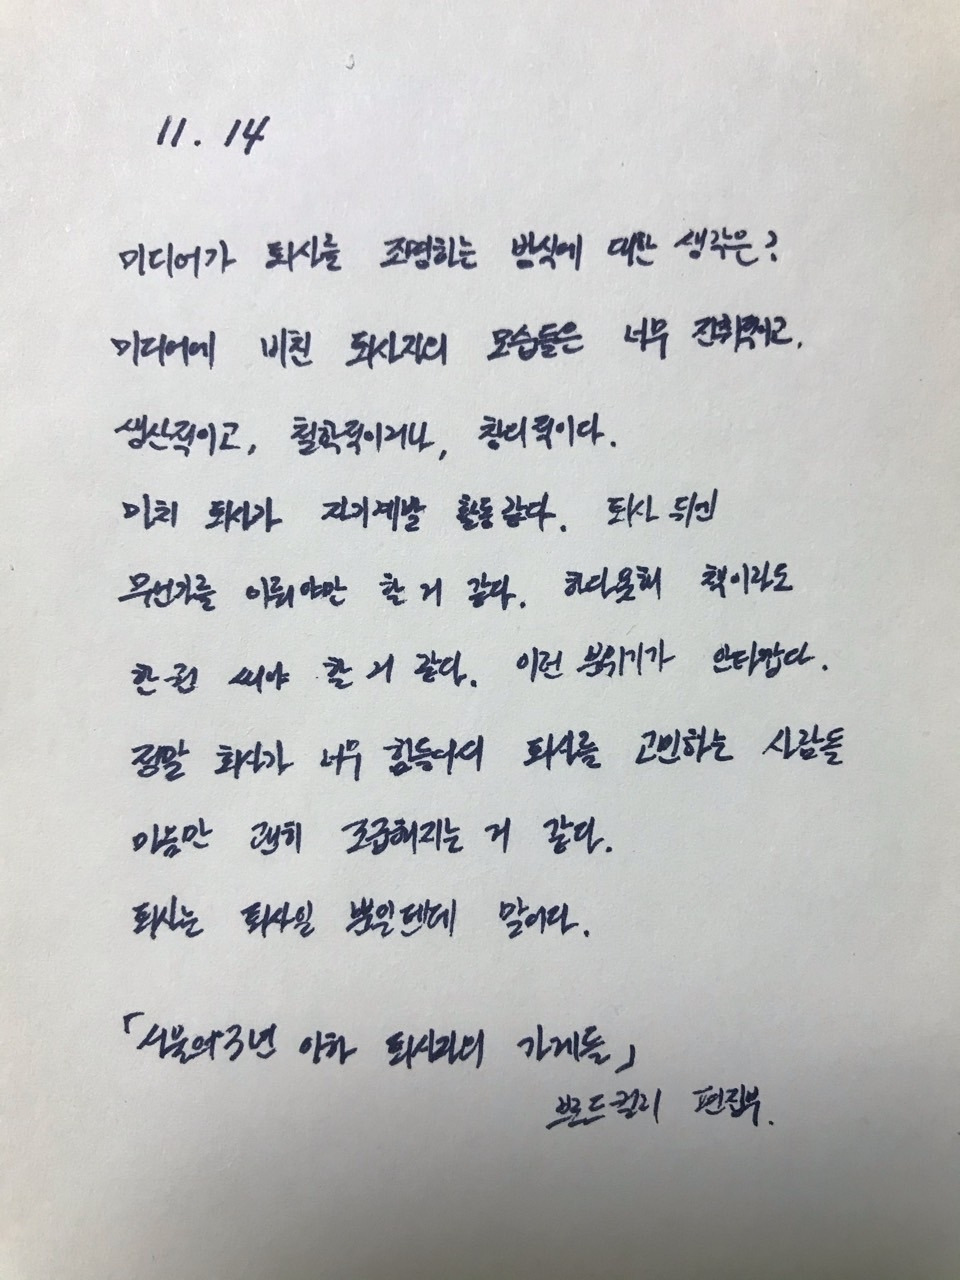 11. 14
미디어가 퇴사를 조명하는 방식에 대한 생각은?
미디어에 비친 퇴사자의 모습들은 너무 진취적이고,
생산적이고, 철학적이거나, 창의적이다.
마치 퇴사가 자기계발 활동 같다. 퇴사 뒤엔
무언가를 이뤄야만 할 거 같다. 하다못해 책이라도
한 권 써야 할 거 같다. 이런 분위기가 안타깝다.
정말 회사가 너무 힘들어서 퇴사를 고민하는 사람들
마음만 괜히 조급해지는 거 같다.
퇴사는 퇴사일 뿐일텐데 말이다.
「서울의 3년 이하 퇴사자의 가게들」
브로드컬리 편집부.